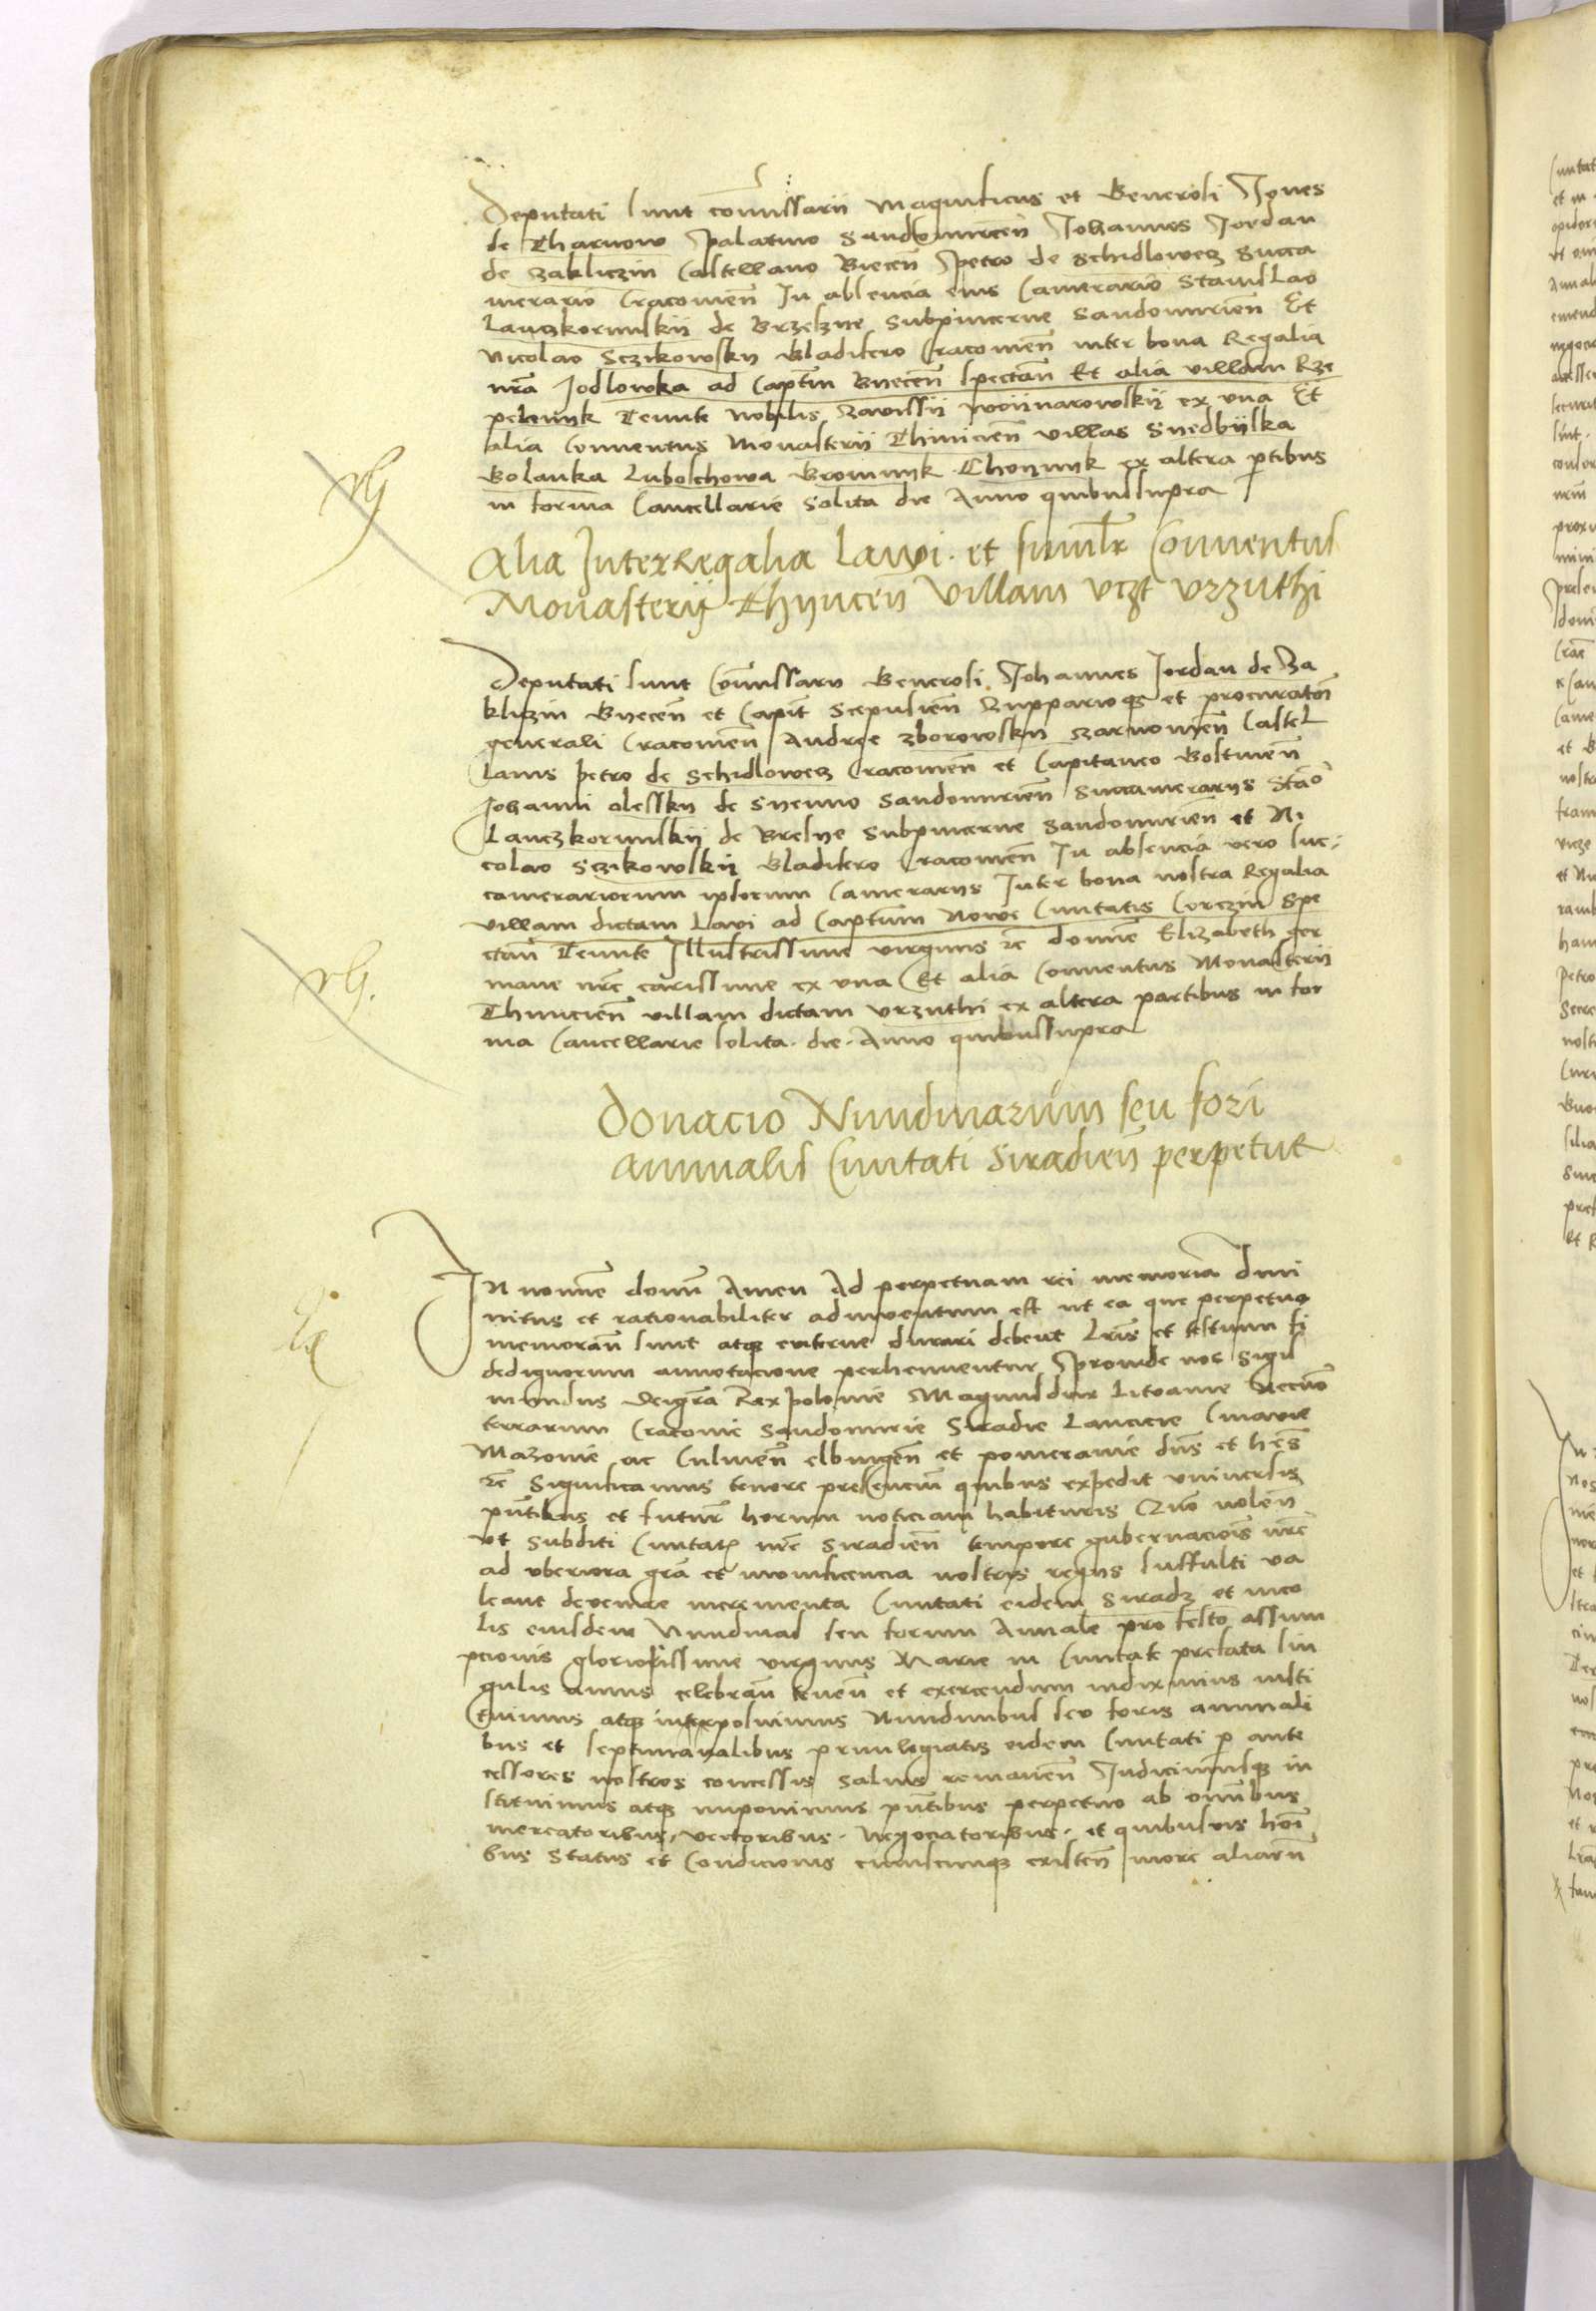 Deputati sunt commissarii Magnificus et Generosi Joñes
de Tharnow palatino Sandomireñ Johannes Jordan
de zakliczin Castellano Biecen̄ petro de Schidlowecz Succa
merario Cracouien̄ In absencia eius Camerario Stanislao
Lanczkorunskij de Brzeszne Subpincerne Sandomirien̄ Et
Nicolao Sczikowsky Gladifero Cracouien̄ inter bona Regalia
nr̄a Jodlowka ad Captm̄ Bieceñ spectañ Et alia villam Rze
pelenyk Tenute Nobilis Zawissij woijnarowskij ex vna Et
alia Conuentus Monasterij Thinicien̄ villas Snedbijska
Rolanka Luboschowa Bromnyk Choynyk ex altera ptibus
in forma Cancellarie Solita die Anno quibussupra
vG
Alia Inter Regalia Lawi. et simlr Conuentus
Monasterij Thyncen̄ Villam vczt vrzuthi
Deputati sunt Com̄issarii Generosi Johannes Jordan de Za
kliczin Biecen̄ et Capit Scepusien̄ Zuppario qz et procuratori
generali Cracouien̄ Andree zborowsky Zarnowien̄ Castel
lanis petro de Schidlowecz Cracouien̄ et Capitaneo Gostinen̄
Johanni olessky de Syenno Sandomirien̄ Succamerarijs Stao
Lanczkorunskij de Bresne Subpincerne Sandomirien̄ et Ni
colao Sczikowskij Gladifero Cracouien̄ In absencia vero suc
camerariorum ipsorum Camerarijs Inter bona nostra Regalia
villam dictam Lawi ad Captum̄ Nowe Ciuitatis Corczin Spe
ctan̄ Tenute Illustrissime virginis rc̄ domine Elizabeth ger
mane nrē carissime ex vna Et alia Conuentus Monasterij
Thinicien̄ villam dictam vrzuthi ex altera partibus in for
ma Cancellarie solita. die. Anno quibussupra
vG.
Donacio Nundinarum seu fori
annualis Ciuitati Siradien̄ perpetue
In nomine domini Amen Ad perpetuam rei memoriā Diui
nitus et rationabiliter adinuentum est ut ea que perpetuo
memoran̄ sunt atqz euiterne durari debent Lris et testium fi
dedignorum annotacione perhennentur proinde nos Sigis
mundus dei grā Rex polonie Magnusdux Litvanie Necnon
terrarum Cracouie Sandomirie Siradie Lancicie Cuiauie
Mazouie ac Culmen̄ elbingen̄ et pomeranie dn̄s et heēs
rc̄ Significamus tenore presencium quibus expedit vniuersis
pn̄tibus et futur̄ horum noticiam habituris Quō uolen̄
vt Subditi Ciuitatis nrē Siradien̄ tempore gubernaciois nrē
ad vberiora grā et munificencia nostris regijs suffulti va
leant deuenire incrementa Ciuitati eidem Siradz et inco
lis eiusdem Nundinas seu forum Annale pro festo assum
pcionis gloriosissime virginis Marie in Ciuitate prefata sin
gulis annis celebran̄ tenen̄ et exercendum indiximus insti
tuimus atqz interposuimus Nundinibus seu foris annuali
bus et septimanalibus priuilegiatis eidem Ciuitati p ante
cessores nostros concessis saluis remanen̄ Indicimusqz in
stituimus atqz imponimus pn̄tibus perpetuo ab om̄ibus
mercatoribus, vectoribus. Negociatoribus. et quibusuis hoī
bus Status et Condicionis cuiuscunqz existen̄ more aliarū